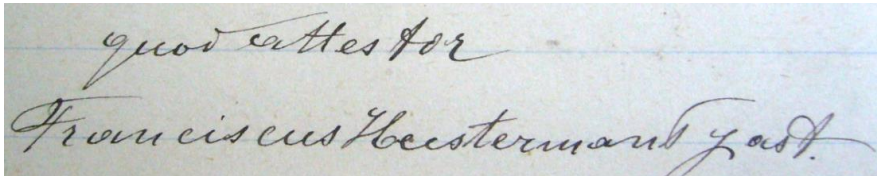 quod attestor
Franciscus Heestermans past.